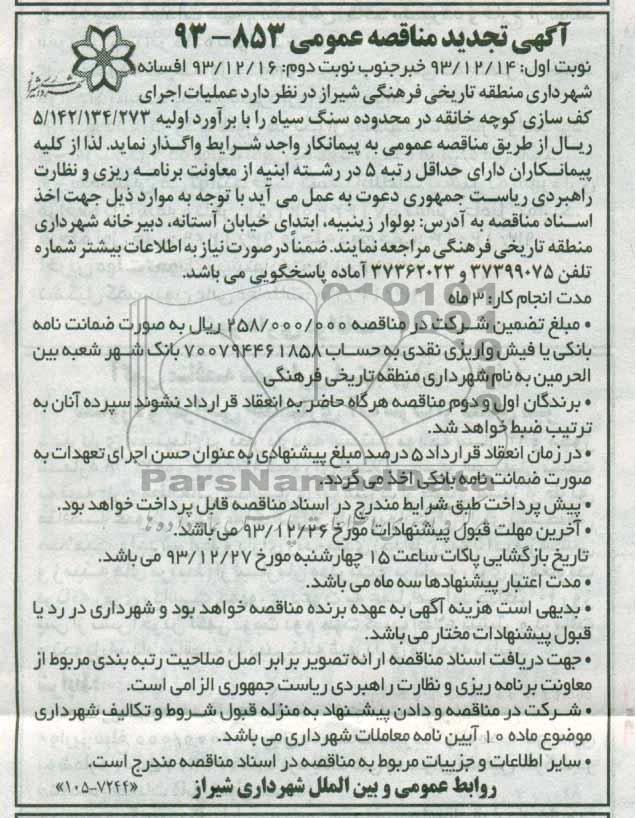 آگهی تجدید مناقصه عمومی ۸۵۳-۹۳
نوبت اول: ۹۳/۱۲/۱۴ خبرجنوب نوبت دوم: ۹۳/۱۲/۱۶ افسانه
شهرداری منطقه تاریخی فرهنگی شیراز در نظر دارد عملیات اجرای
کف سازی کوچه خانقه در محدوده سنگ سیاه را با برآورد اولیه ۵/۱۴۲/۱۳۴/۲۷۳
ریال از طریق مناقصه عمومی به پیمانکار واجد شرایط واگذار نماید. لذا از کلیه
پیمانکاران دارای حداقل رتبه ۵ در رشته ابنیه از معاونت برنامه ریزی و نظارت
راهبردی ریاست جمهوری دعوت به عمل می آید با توجه به موارد ذیل جهت اخذ
اسناد مناقصه به آدرس: بولوار زینبیه، ابتدای خیابان آستانه، دبیرخانه شهرداری
منطقه تاریخی فرهنگی مراجعه نمایند. ضمناً در صورت نیاز به اطلاعات بیشتر شماره
تلفن ۳۷۳۹۹۰۷۵ و ۳۷۳۶۲۰۲۳ آماده پاسخگویی می باشد.
مدت انجام کار: ۳ ماه
• مبلغ تضمین شرکت در مناقصه ۲۵۸/۰۰۰/۰۰۰ ریال به صورت ضمانت نامه
بانکی یا فیش واریزی نقدی به حساب ۷۰۰۷۹۴۴۶۱۸۵۸ بانک شهر شعبه بین
الحرمین به نام شهرداری منطقه تاریخی فرهنگی
• برندگان اول و دوم مناقصه هرگاه حاضر به انعقاد قرارداد نشوند سپرده آنان به
ترتیب ضبط خواهد شد.
• در زمان انعقاد قرارداد ۵ درصد مبلغ پیشنهادی به عنوان حسن اجرای تعهدات به
صورت ضمانت نامه بانکی اخذ می گردد.
• پیش پرداخت طبق شرایط مندرج در اسناد مناقصه قابل پرداخت خواهد بود.
• آخرین مهلت قبول پیشنهادات مورخ ۹۳/۱۲/۲۶ می باشد.
تاریخ بازگشایی پاکات ساعت ۱۵ چهارشنبه مورخ ۹۳/۱۲/۲۷ می باشد.
• مدت اعتبار پیشنهادها سه ماه می باشد.
• بدیهی است هزینه آگهی به عهده برنده مناقصه خواهد بود و شهرداری در رد یا
قبول پیشنهادات مختار می باشد.
• جهت دریافت اسناد مناقصه ارائه تصویر برابر اصل صلاحیت رتبه بندی مربوط از
معاونت برنامه ریزی و نظارت راهبردی ریاست جمهوری الزامی است.
• شرکت در مناقصه و دادن پیشنهاد به منزله قبول شروط و تکالیف شهرداری
موضوع ماده ۱۰ آیین نامه معاملات شهرداری می باشد.
• سایر اطلاعات و جزییات مربوط به مناقصه در اسناد مناقصه مندرج است.
روابط عمومی و بین الملل شهرداری شیراز «۱۰۵-۷۲۴۴»
ParsNamadData